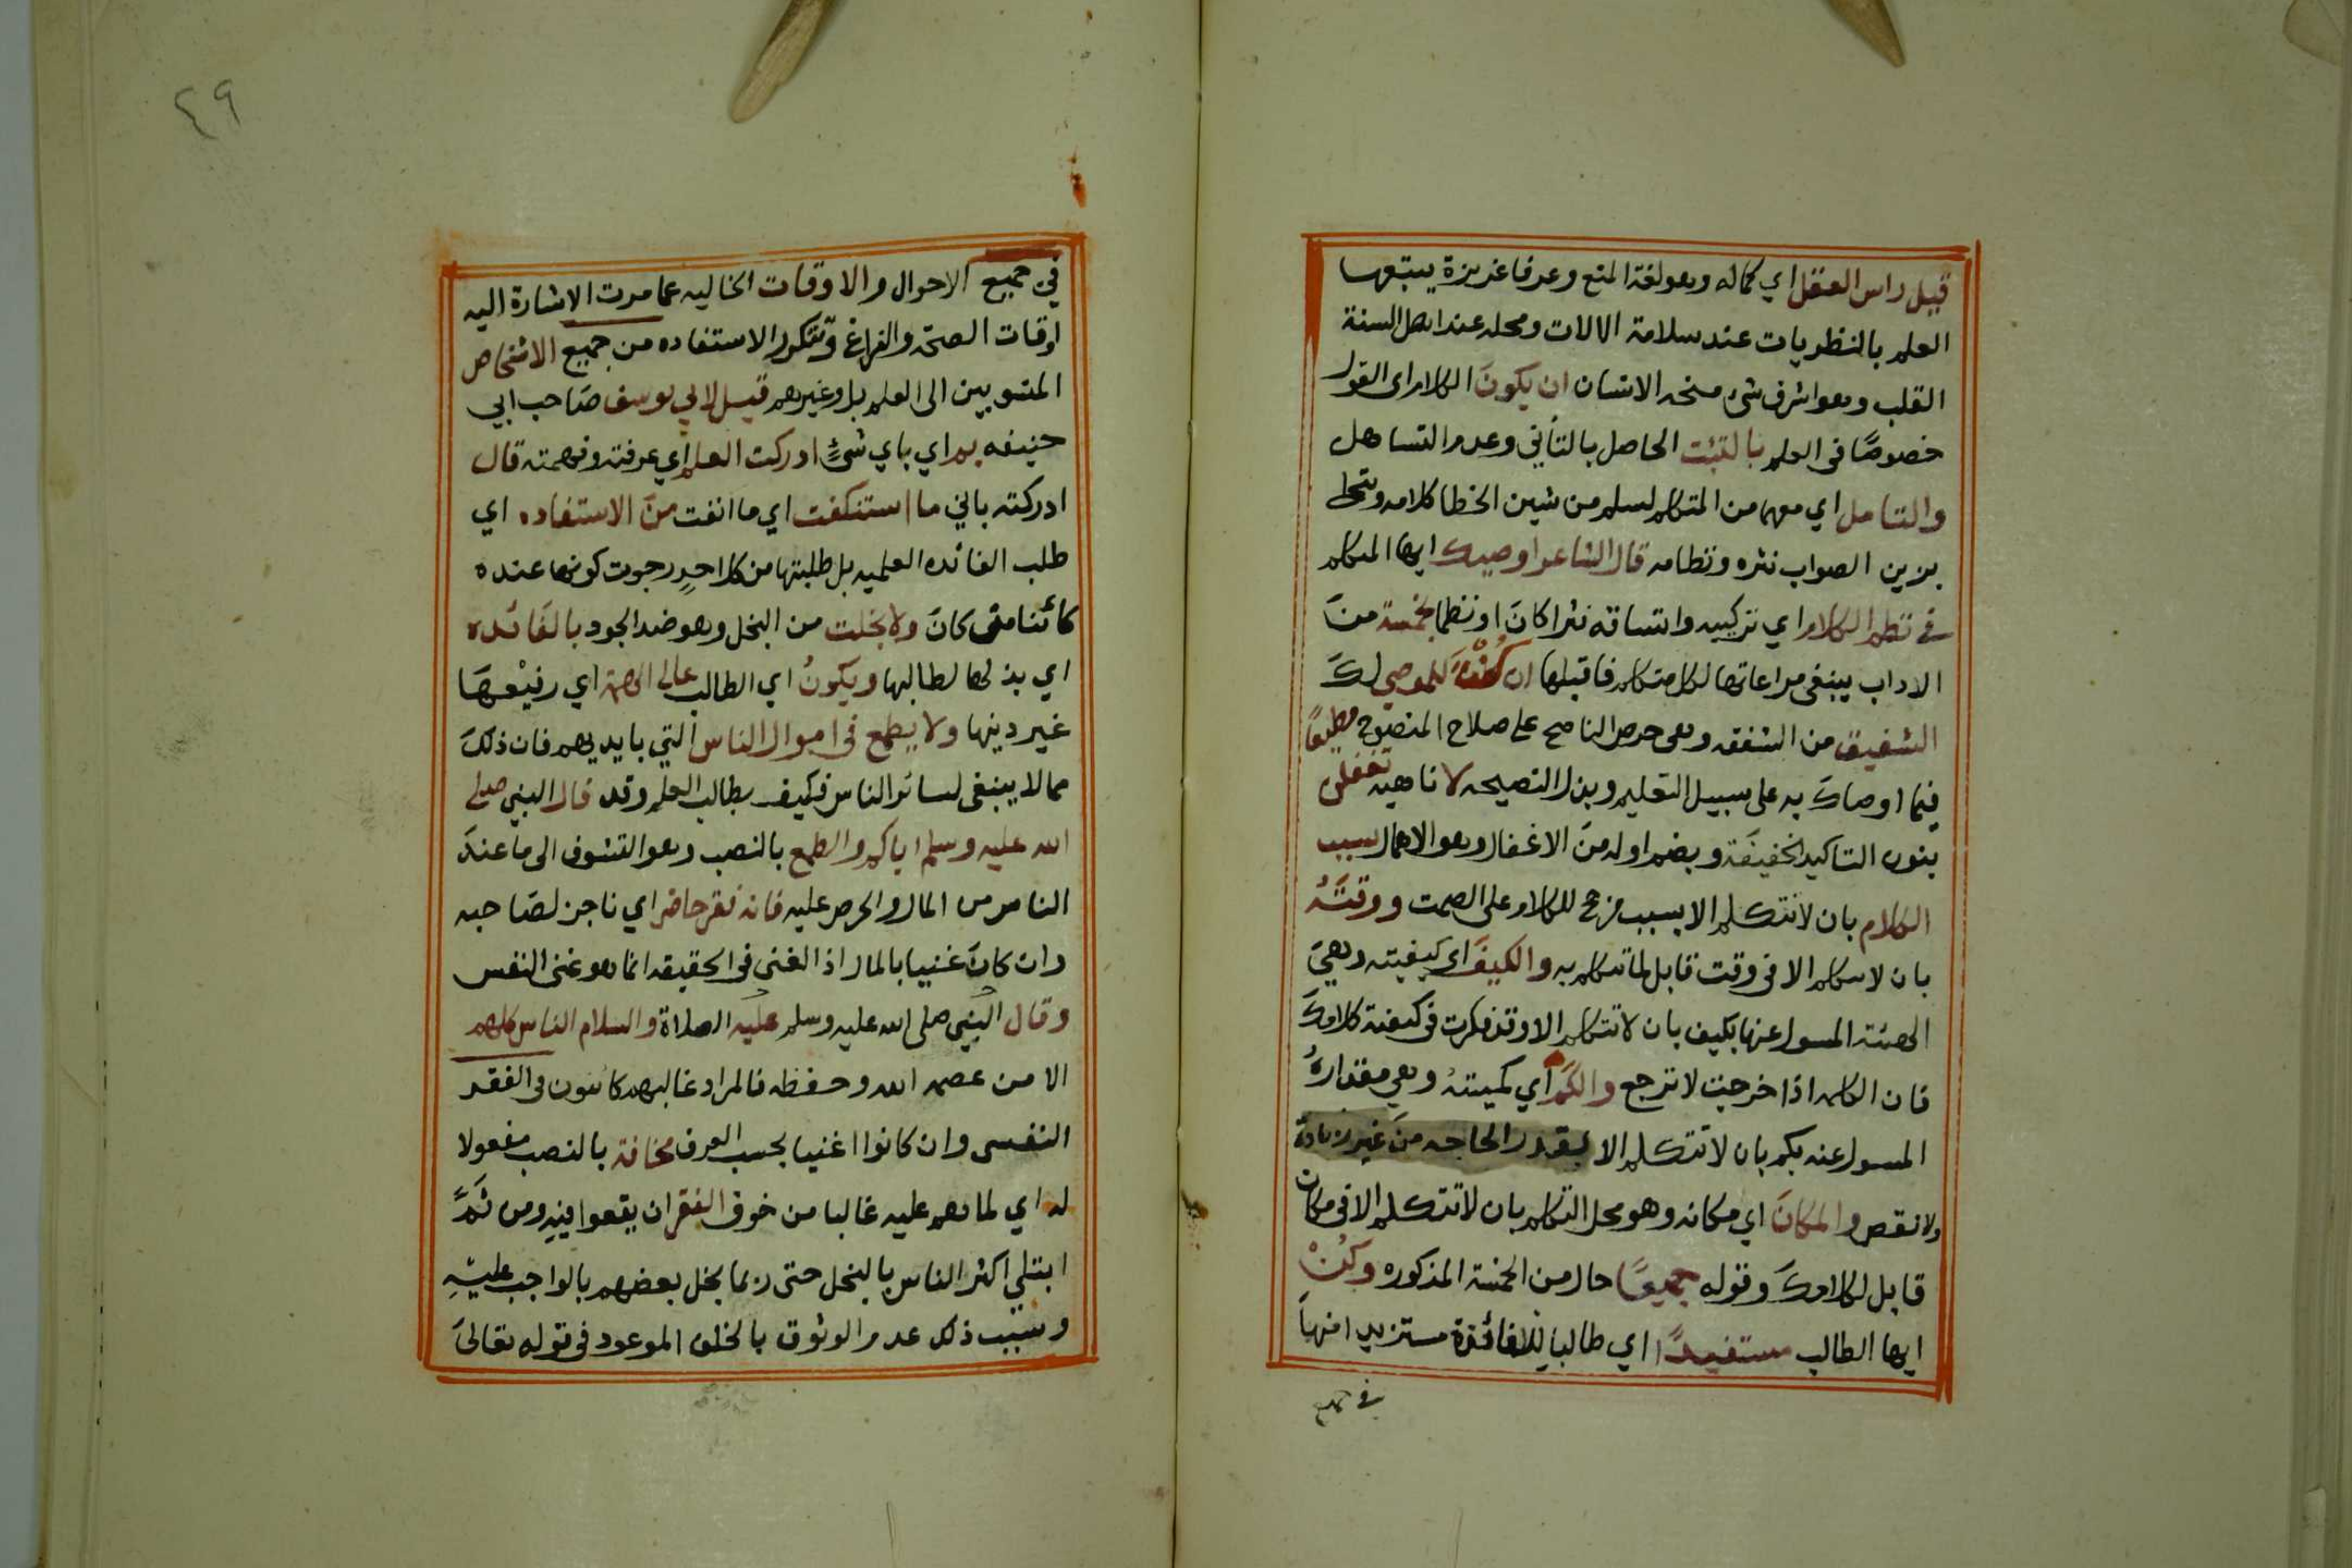 قيل راس العقل اي كماله وهو لغة المنع وعرفا غريزة يتبعها
العلم بالنظريات عند سلامة الالات ومحله عند اهل السنة
القلب وهو اشرف شئ منحه الانسان ان يكون الكلام اى القول
خصوصًا فى العلم بالتثبت الحاصل بالتأني وعدم التساهل
والتامل اي مهما من المتكلم لسلم من شين الخطا كلامه وتحلى
بزين الصواب نثره ونظامه قال الشاعر اوصيك ايها المتكلم
في نظم الكلام اي تركيبه واتساقه نثرا كان او نظما بخمسة من
الاداب ينبغى مراعاتها لكل متكلم فاقبلها ان كُنْتَ للموصي لك
الشفيق من الشفقه وهى حرص الناصح على صلاح المنصوح مطيعًا
فيما اوصاك به على سبيل التعليم وبذل النصيحه لا ناهيه تغفلن
بنون التاكيد الخفيفة وبضم اوله من الاغفال وهو الاهمال سبب
الكلام بان لا تتكلم الا بسبب مرجح للكلام على الصمت ووقته
بان لا تتكلم الا فى وقت قابل لما تتكلم به والكيف اى كيفيته وهى
الهيئة المسول عنها بكيف بان لا تتكلم الا وقد فكرت فى كيفية كلامك
فان الكلمه اذا خرجت لا ترجع والكم اي كميته وهي مقداره
المسول عنه بكم بان لا تتكلم الا بقدر الحاجه من غير زيادة
ولا نقص والمكان اي مكانه وهو محل التكلم بان لا تتكلم الا فى مكان
قابل لكلامك وقوله جميعًا حال من الخمسة المذكوره وكن
ايها الطالب مستفيدًا اي طالبا للافائدة مستزيدا منها
في جميع
٤٩
في جميع الاحوال والاوقات الخاليه عما مرت الاشارة اليه
اوقات الصحة والفراغ وتتكرر الاستفاده من جميع الاشخاص
المنسوبين الى العلم بل وغيرهم قيل لابي يوسف صاحب ابي
حنيفه بم اي باي شئٍ ادركت العلم اي عرفته وفهمته قال
ادركته باني ما استنكفت اي ما انفت من الاستفاده اي
طلب الفائده العلميه بل طلبتها من كل احدٍ رجوت كونها عنده
كائنا من كان ولا بخلت من البخل وهو ضد الجود بالفائده
اي بذلها لطالبها ويكون اي الطالب عالى الهمة اي رفيعها
غير دنيها ولا يطمع فى اموال الناس التي بايديهم فان ذلك
مما لا ينبغى لسائر الناس فكيف بطالب العلم وقد قال النبي صلى
الله عليه وسلم اياكم والطمع بالنصب وهو التشوف الى ما عند
الناس من المال والحرص عليه فانه فقر حاضر اي ناجز لصاحبه
وان كان غنيا بالمال اذ الغنى فى الحقيقه انما هو غنى النفس
وقال النبي صلى الله عليه وسلم عليه الصلاة والسلام الناس كلهم
الا من عصمه الله وحفظه فالمراد غالبهم كائنون فى الفقر
النفسى وان كانوا اغنيا بحسب العرف مخافة بالنصب مفعولا
له اي لما هم عليه غالبا من خوف الفقر ان يقعوا فيه ومن ثَمَّ
ابتلي اكثر الناس بالبخل حتى ربما بخل بعضهم بالواجب عليه
وسبب ذلك عدم الوثوق بالخلف الموعود فى قوله تعالى